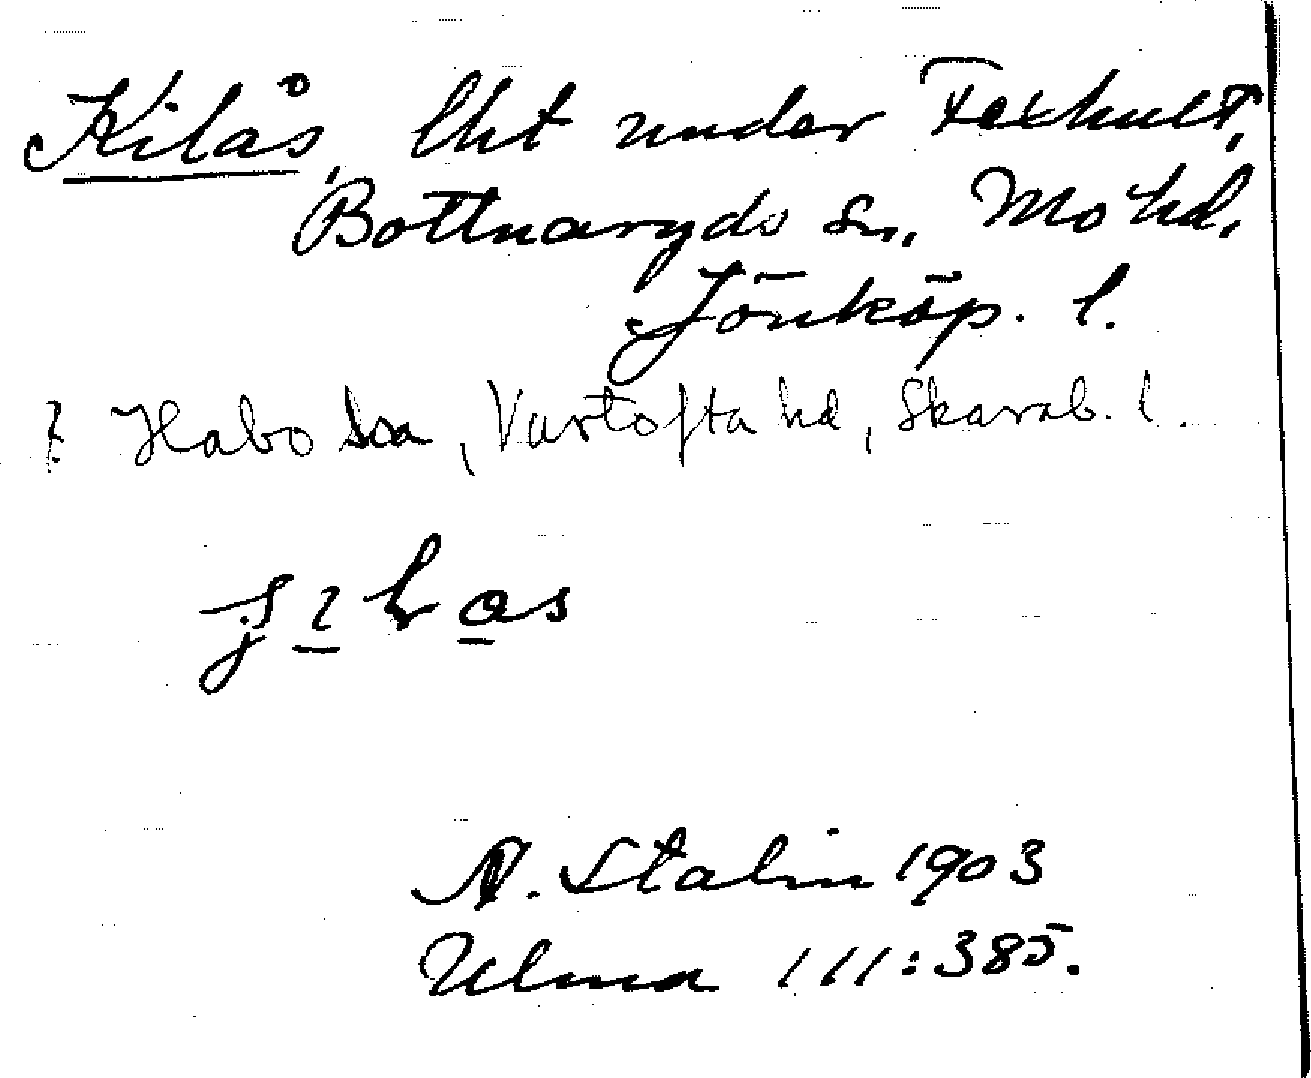 Kilås, lht under Fexhult,
Bottnaryds sn, Mo hd,
Jönköp. l.
? Habo sn, Vartofta hd, Skarab. l.
A. Stalin 1903
Ulma 111:385.